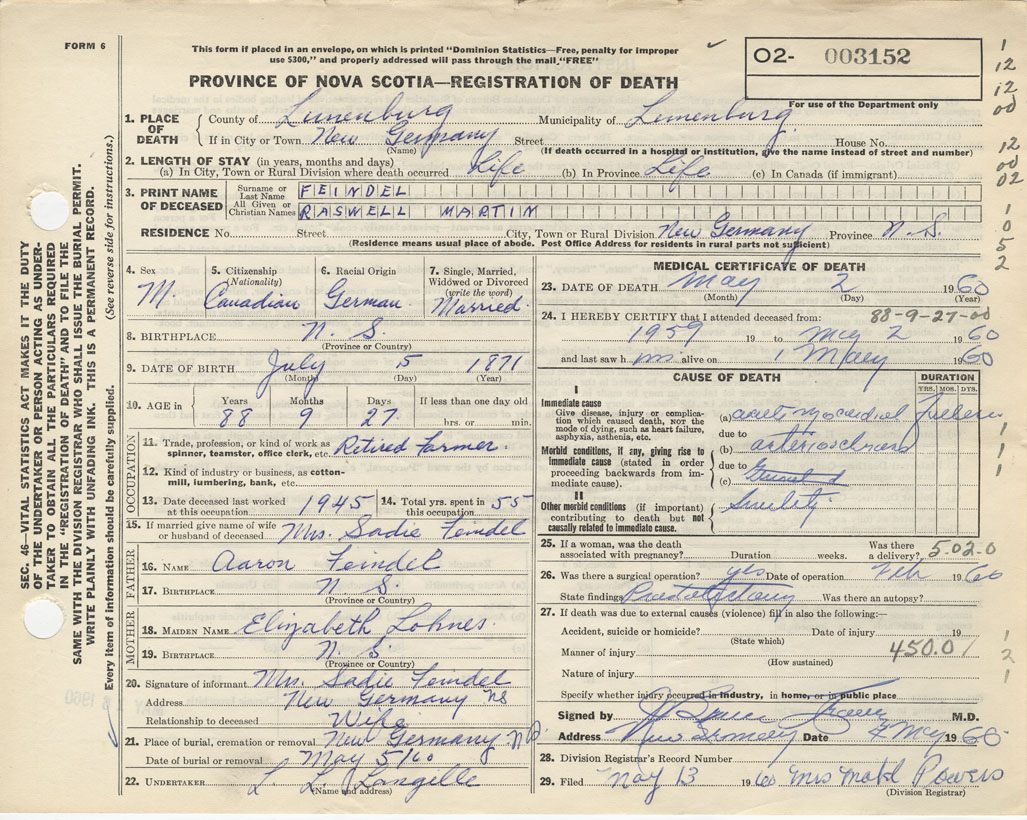 FORM 6
This form if placed in an envelope, on which is printed "Dominion Statistics—Free, penalty for improper
use $300," and properly addressed will pass through the mail "FREE"
O2- 003152
For use of the Department only
PROVINCE OF NOVA SCOTIA—REGISTRATION OF DEATH
1. PLACE OF DEATH
County of Lunenburg Municipality of Lunenburg
If in City or Town New Germany Street House No.
(Name) (If death occurred in a hospital or institution, give the name instead of street and number)
2. LENGTH OF STAY (in years, months and days)
(a) In City, Town or Rural Division where death occurred Life (b) In Province Life (c) In Canada (if immigrant)
3. PRINT NAME OF DECEASED
Surname or Last Name FEINDEL
All Given or Christian Names RASWELL MARTIN
RESIDENCE No. Street City, Town or Rural Division New Germany Province N.S.
(Residence means usual place of abode. Post Office Address for residents in rural parts not sufficient)
4. Sex M.
5. Citizenship (Nationality) Canadian
6. Racial Origin German
7. Single, Married, Widowed or Divorced (write the word) Married
8. BIRTHPLACE N. S.
(Province or Country)
9. DATE OF BIRTH July 5 1871
(Month) (Day) (Year)
10. AGE in Years 88 Months 9 Days 27 If less than one day old hrs. or min.
OCCUPATION
11. Trade, profession, or kind of work as spinner, teamster, office clerk, etc. Retired Farmer
12. Kind of industry or business, as cotton-mill, lumbering, bank, etc.
13. Date deceased last worked at this occupation 1945 14. Total yrs. spent in this occupation 55
15. If married give name of wife or husband of deceased Mrs. Sadie Feindel
FATHER
16. NAME Aaron Feindel
17. BIRTHPLACE N. S.
(Province or Country)
MOTHER
18. MAIDEN NAME Elizabeth Lohnes
19. BIRTHPLACE N. S.
(Province or Country)
20. Signature of informant Mrs. Sadie Feindel
Address New Germany NS
Relationship to deceased Wife
21. Place of burial, cremation or removal New Germany NS
Date of burial or removal May 5/60
22. UNDERTAKER L. L. Langille
(Name and address)
MEDICAL CERTIFICATE OF DEATH
23. DATE OF DEATH May 2 1960
(Month) (Day) (Year)
24. I HEREBY CERTIFY that I attended deceased from: 88-9-27-00
1959 19 to May 2 1960
and last saw him alive on 1 May 1960
CAUSE OF DEATH
DURATION
YRS. MOS. DYS.
I
Immediate cause
Give disease, injury or complication which caused death, NOT the mode of dying, such as heart failure, asphyxia, asthenia, etc.
(a) acute myocardial failure
due to
Morbid conditions, if any, giving rise to immediate cause (stated in order proceeding backwards from immediate cause).
(b) arteriosclerosis
due to
(c)
II
Other morbid conditions (if important) contributing to death but not causally related to immediate cause.
Senility
25. If a woman, was the death associated with pregnancy? Duration weeks. Was there a delivery? 5.02.0
26. Was there a surgical operation? yes Date of operation Feb 1960
State findings Was there an autopsy?
27. If death was due to external causes (violence) fill in also the following:—
Accident, suicide or homicide? Date of injury 19
(State which)
Manner of injury 450.0
(How sustained)
Nature of injury
Specify whether injury occurred in industry, in home, or in public place
Signed by M.D.
Address New Germany Date 4 May 1960
28. Division Registrar's Record Number
29. Filed May 13 1960 Mrs Powers
(Division Registrar)
SEC. 46—VITAL STATISTICS ACT MAKES IT THE DUTY
OF THE UNDERTAKER OR PERSON ACTING AS UNDER-
TAKER TO OBTAIN ALL THE PARTICULARS REQUIRED
IN THE "REGISTRATION OF DEATH" AND TO FILE THE
SAME WITH THE DIVISION REGISTRAR WHO SHALL ISSUE THE BURIAL PERMIT.
WRITE PLAINLY WITH UNFADING INK. THIS IS A PERMANENT RECORD.
Every item of information should be carefully supplied. (See reverse side for instructions.)
1
12
12
00
12
00
02
1
0
5
2
1
1
1
1
2
1